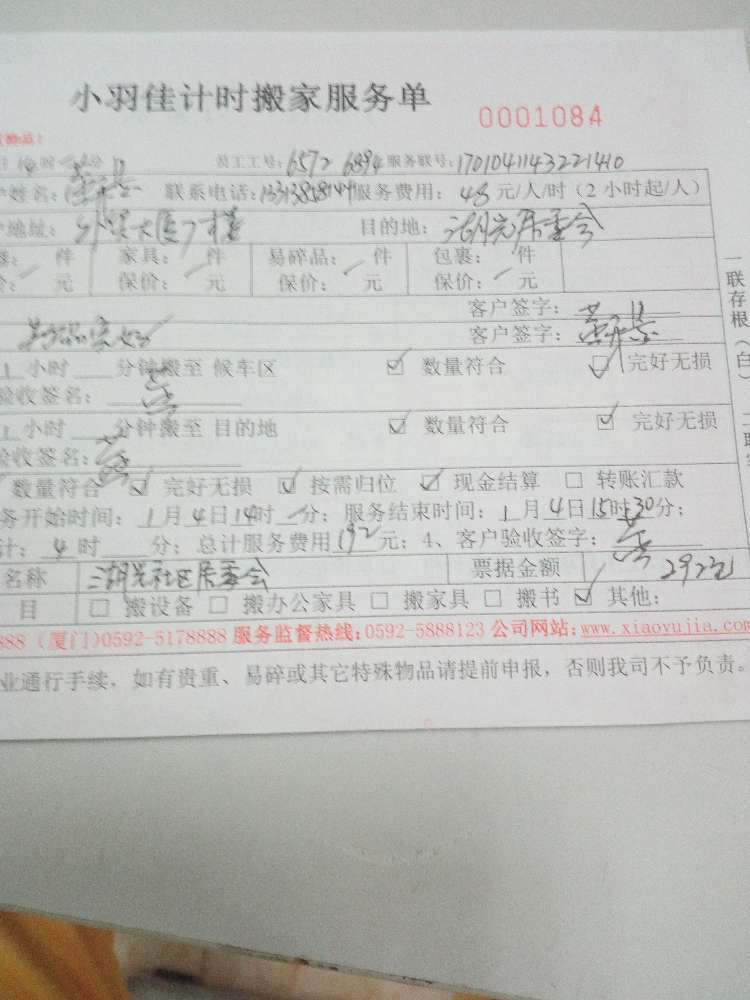 小羽佳计时搬家服务单 0001084
员工工号: 6572 6894 服务联号: 1701041143221410
姓名: 联系电话: 服务费用: 48 元/人/时 (2 小时起/人)
地址: 目的地: 湖光居委会
件 家具: 件 易碎品: 件 包裹: 件
元 保价: 元 保价: 元 保价: 元
客户签字:
客户签字:
1 小时 分钟搬至 候车区 ☑ 数量符合 ☑ 完好无损
验收签名:
1 小时 分钟搬至 目的地 ☑ 数量符合 ☑ 完好无损
验收签名:
数量符合 ☑ 完好无损 ☑ 按需归位 ☑ 现金结算 □ 转账汇款
务开始时间: 1 月 4 日 14时 分; 服务结束时间: 1 月 4 日 15时 30分;
计: 4 时 分; 总计服务费用 192 元; 4、客户验收签字:
名称 湖光社区居委会 票据金额 292元
目 □ 搬设备 □ 搬办公家具 □ 搬家具 □ 搬书 ☑ 其他:
888 (厦门)0592-5178888 服务监督热线:0592-5888123 公司网站:www.xiaoyujia.com
业通行手续, 如有贵重、易碎或其它特殊物品请提前申报, 否则我司不予负责。
一联存根(白)